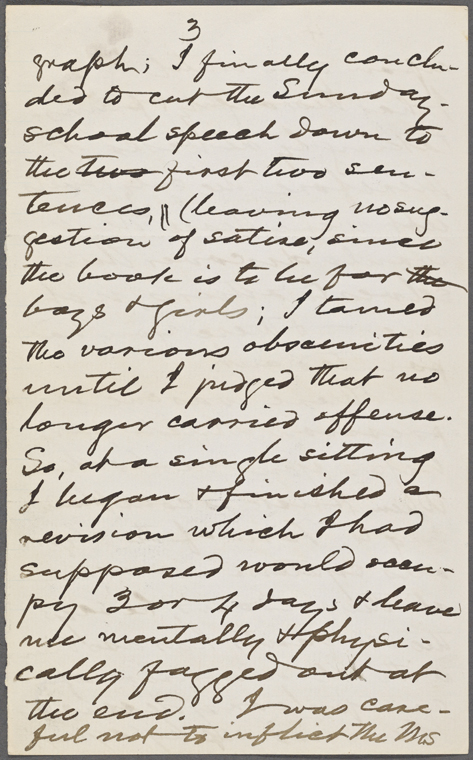 3
graph; I finally conclu-
ded to cut the Sunday-
school speech down to
the two first two sen-
tences, (leaving no sug-
gestion of satire, since
the book is to be for the
boys & girls; I tamed
the various obscenities
until I judged that no
longer carried offense.
So, at a single sitting
I began & finished a
revision which I had
supposed would occu-
py 3 or 4 days & leave
me mentally & physi-
cally fagged out at
the end. I was care-
ful not to inflict the MS